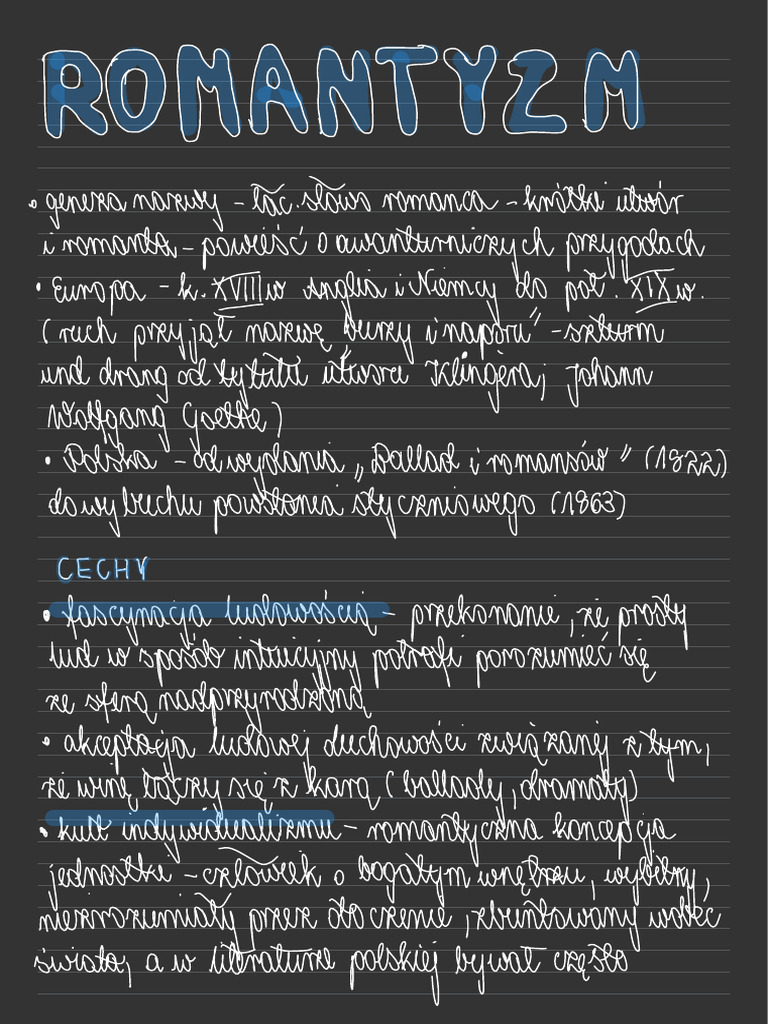 ROMANTYZM
• geneza nazwy - łac. słowo romanca - krótki utwór
i romando - powieść o awanturniczych przygodach
• Europa - k. XVIII w Anglia i Niemcy do poł. XIX w.
(ruch przyjął nazwę „burzy i naporu" - szturm
und drang od tytułu utworu Klingera; Johann
Wolfgang Goethe)
• Polska - od wydania „Ballad i romansów" (1822)
do wybuchu powstania styczniowego (1863)
CECHY
• fascynacja ludowością - przekonanie, że prosty
lud w sposób intuicyjny potrafi porozumieć się
ze sferą nadprzyrodzoną
• akceptacja ludowej duchowości związanej z tym,
że winę łączy się z karą (ballady, dramaty)
• kult indywidualizmu - romantyczna koncepcja
jednostki - człowiek o bogatym wnętrzu, wybitny,
niezrozumiały przez otoczenie, zbuntowany wobec
świata, a w literaturze polskiej bywał często